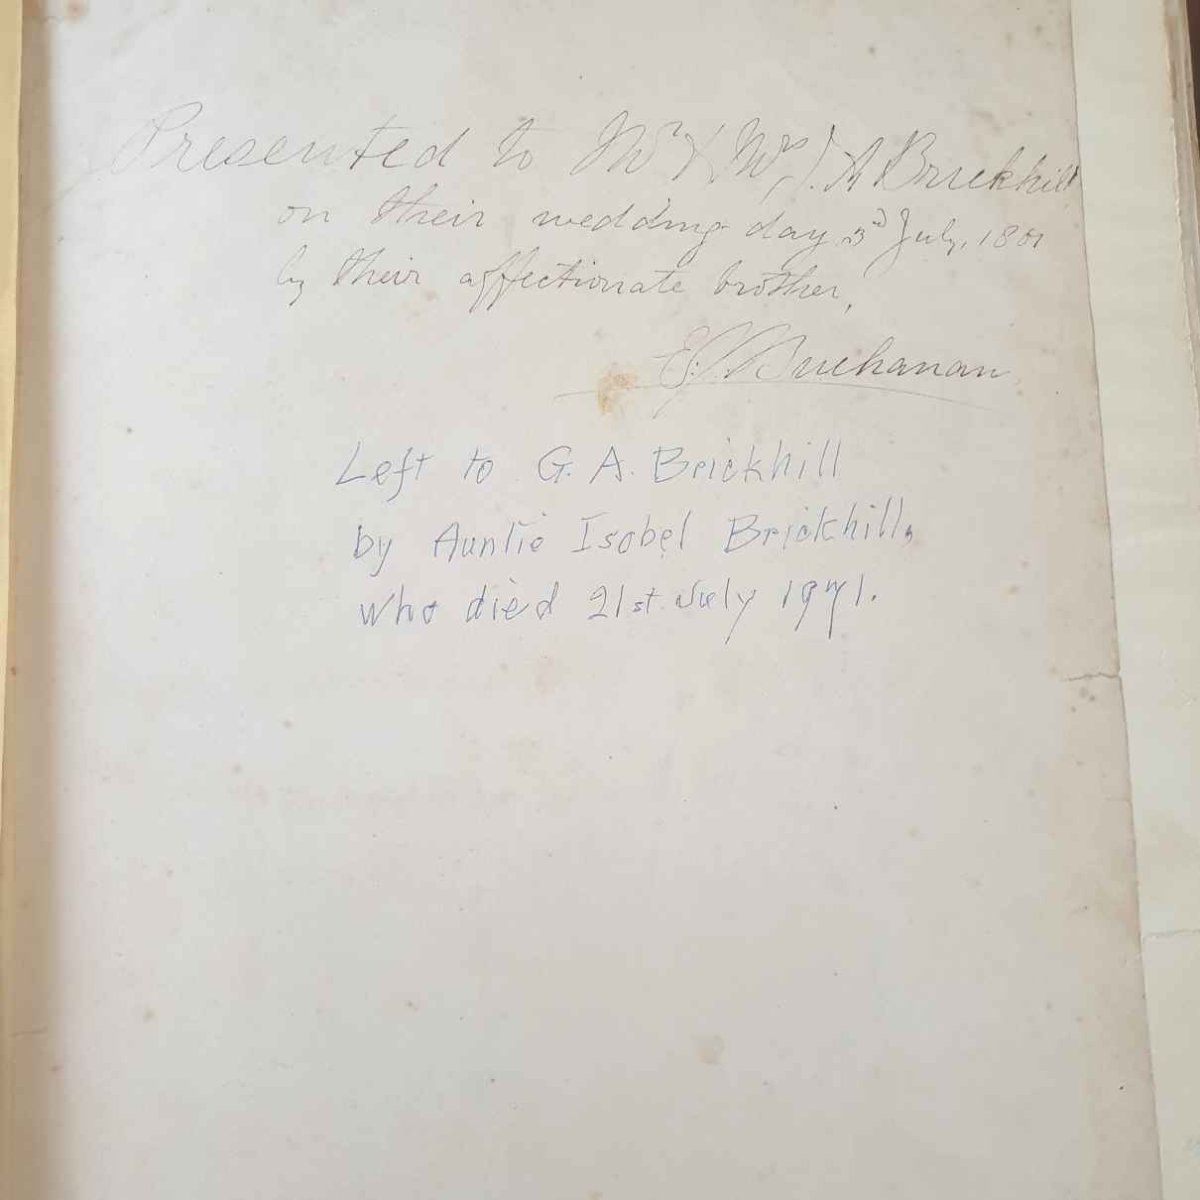 Presented to Mr & Mrs J. A Brickhill
on their wedding day 3rd July, 1801
by their affectionate brother,
E. J. Buchanan
Left to G. A. Brickhill
by Auntie Isobel Brickhill,
who died 21st July 1971.